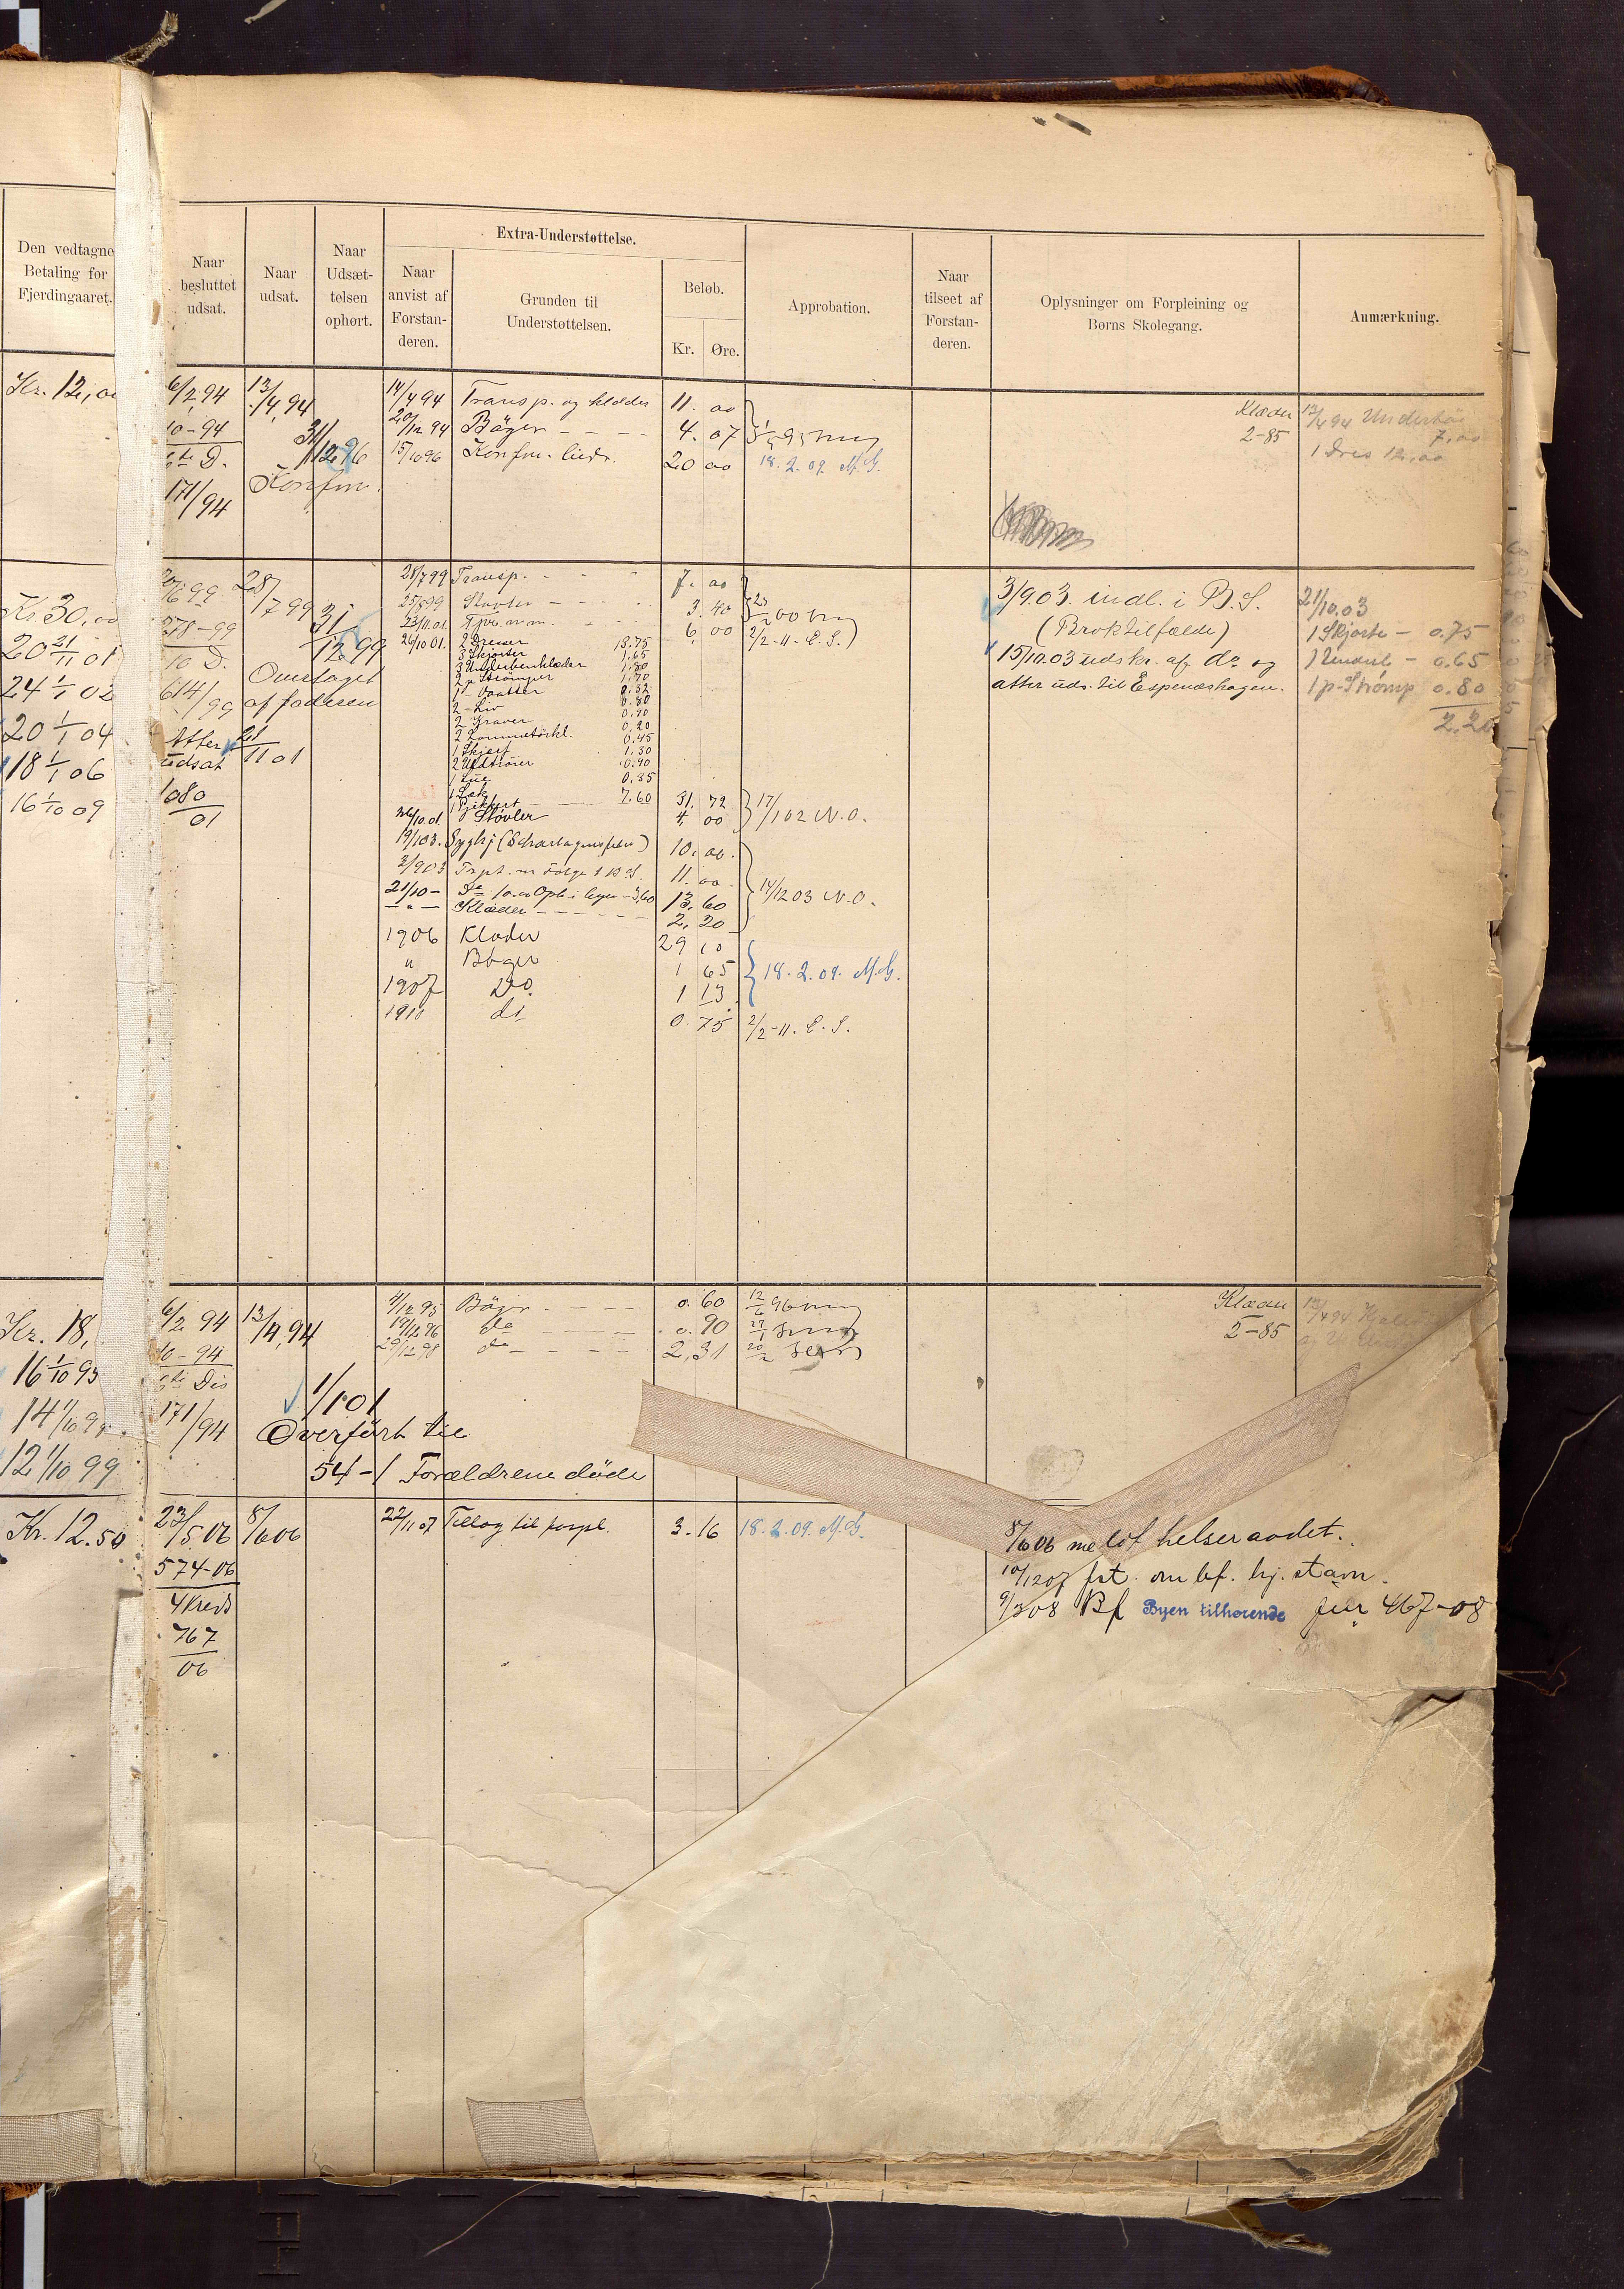 Den vedtagne
Betaling for
Fjerdingaaret.
Naar
besluttet
udsat.
Naar
udsat.
Naar
Udsæt-
telsen
ophørt.
Extra-Understøttelse.
Naar
anvist af
Forstan-
deren.
Grunden til
Understøttelsen.
Beløb.
Kr. Øre.
Approbation.
Naar
tilseet af
Forstan-
deren.
Oplysninger om Forpleining og
Børns Skolegang.
Anmærkning.
Kr. 12,00
6/2 94
10-94
6te D.
171/94
13/4 94
31/12 96
Konfm.
14/4 94 Transp. og klæder 11. 00
20/12 94 Bøger - - - - 4. 07
15/10 96 Konfm. 20 00
18.2.09 M.G.
Klæder
2-85
13/4 94
7,00
1 Dres 12,00
Kr. 30,00
20 21/11 01
24 1/1 02
20 1/1 04
18 1/1 06
16 1/10 09
378-99
10 D.
614/99
Atter
udsat
1080
01
28/7 99
31/12 99
Overtaget
af faderen
21/11 01
28/7 99 Transp. - - - 7. 00
25/8 99 Støvler - - - 3. 40
23/11 01. 6. 00
2/2-11. E.S.
26/10 01. 2 Dresser 13.75
3 Skjorter 1.65
3 Underbenklæder 1.80
2 p Strømper 1.70
1 Vanter 0.52
2 - Liv 0.80
2 Graver 0.90
2 Lommetörkl. 0.20
1 Skjerf 0.45
2 Uldtrøier 1.30
1 Lue 0.90
1 Sæk 0.85
7.60 31. 72
26/10 01 Støvler 4. 00
17/1 02 N.O.
19/1 03. 10. 00.
3/9 03 11. 00.
21/10 - 13. 60
- " - Klæder - - - - - 2. 20
14/12 03 N.O.
1906 Klæder 29 10
" Bøger 1 65
1907 Do. 1 13
18.2.09. M.G.
1910 do 0. 75 2/2-11. E.S.
3/9.03. indl. i B.S.
(Broktilfælde)
15/10.03 udskr. af do og
atter uds. til Espenæshagen.
21/10.03
1 Skjorte - 0.75
1 - 0.65
1 p. Strømp 0.80
2.20
Kr. 18,
16 1/10 95
12 1/10 99
6/2 94
10-94
6te Dis
171/94
13/4 94
1/1 01
Overført til
54-1 Forældrene døde
4/12 95 Bøger - - - - 0. 60
19/12 96 do - - - - 0. 90
29/12 98 do - - - - 2,31
Klæder
2-85
13/4 94
Kr. 12.50
23/5 06
574-06
4 Kreds
767
06
8/6 06
22/11 07 Tillæg til forpl. 3. 16 18.2.09. M.G.
8/6 06 helseraadet.
10/12 07 fat. om bf. hj. stavn.
9/3 08 Bf Byen tilhørende jnr 467-08